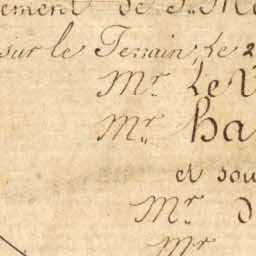 ement de St. M
sur le Terrain, le 2
Mr. Le V
Mr. Ha
et sou
Mr. D
Mr